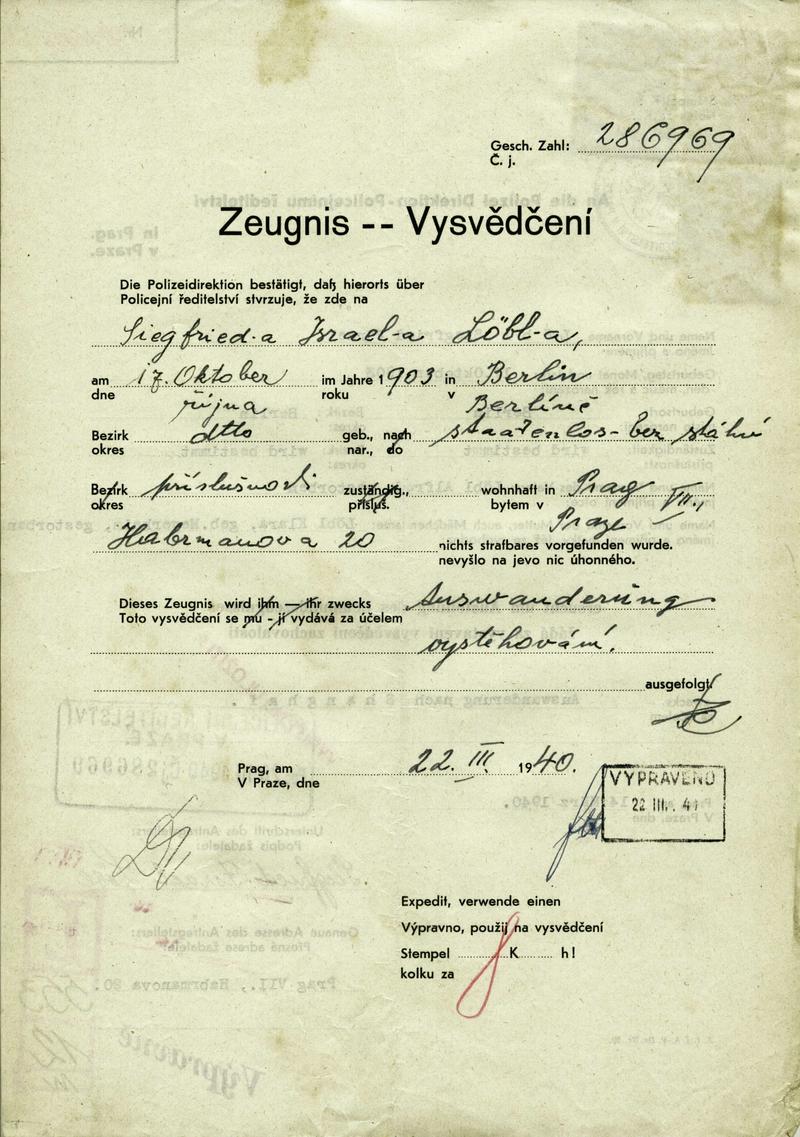 Gesch. Zahl: 286969
Č. j.
Zeugnis -- Vysvědčení
Die Polizeidirektion bestätigt, daß hierorts über
Policejní ředitelství stvrzuje, že zde na
Siegfried-a Israel-a Löbl-a,
am 17. Oktober im Jahre 1903 in Berlin
dne října roku v Berlíně
Bezirk dtto geb., nach staatenlos - bez státní
okres nar., do
Bezirk příslušnosti zuständig., wohnhaft in Prag VII.,
okres přísluš. bytem v Praze
Habrmanova 20 nichts strafbares vorgefunden wurde.
nevyšlo na jevo nic úhonného.
Dieses Zeugnis wird ihm — ihr zwecks Auswanderung
Toto vysvědčení se mu - jí vydává za účelem
vystěhování.
ausgefolgt
Prag, am 22. III. 1940.
V Praze, dne
VYPRAVENO
22 III. 4
Expedit, verwende einen
Výpravno, použij na vysvědčení
Stempel K h!
kolku za